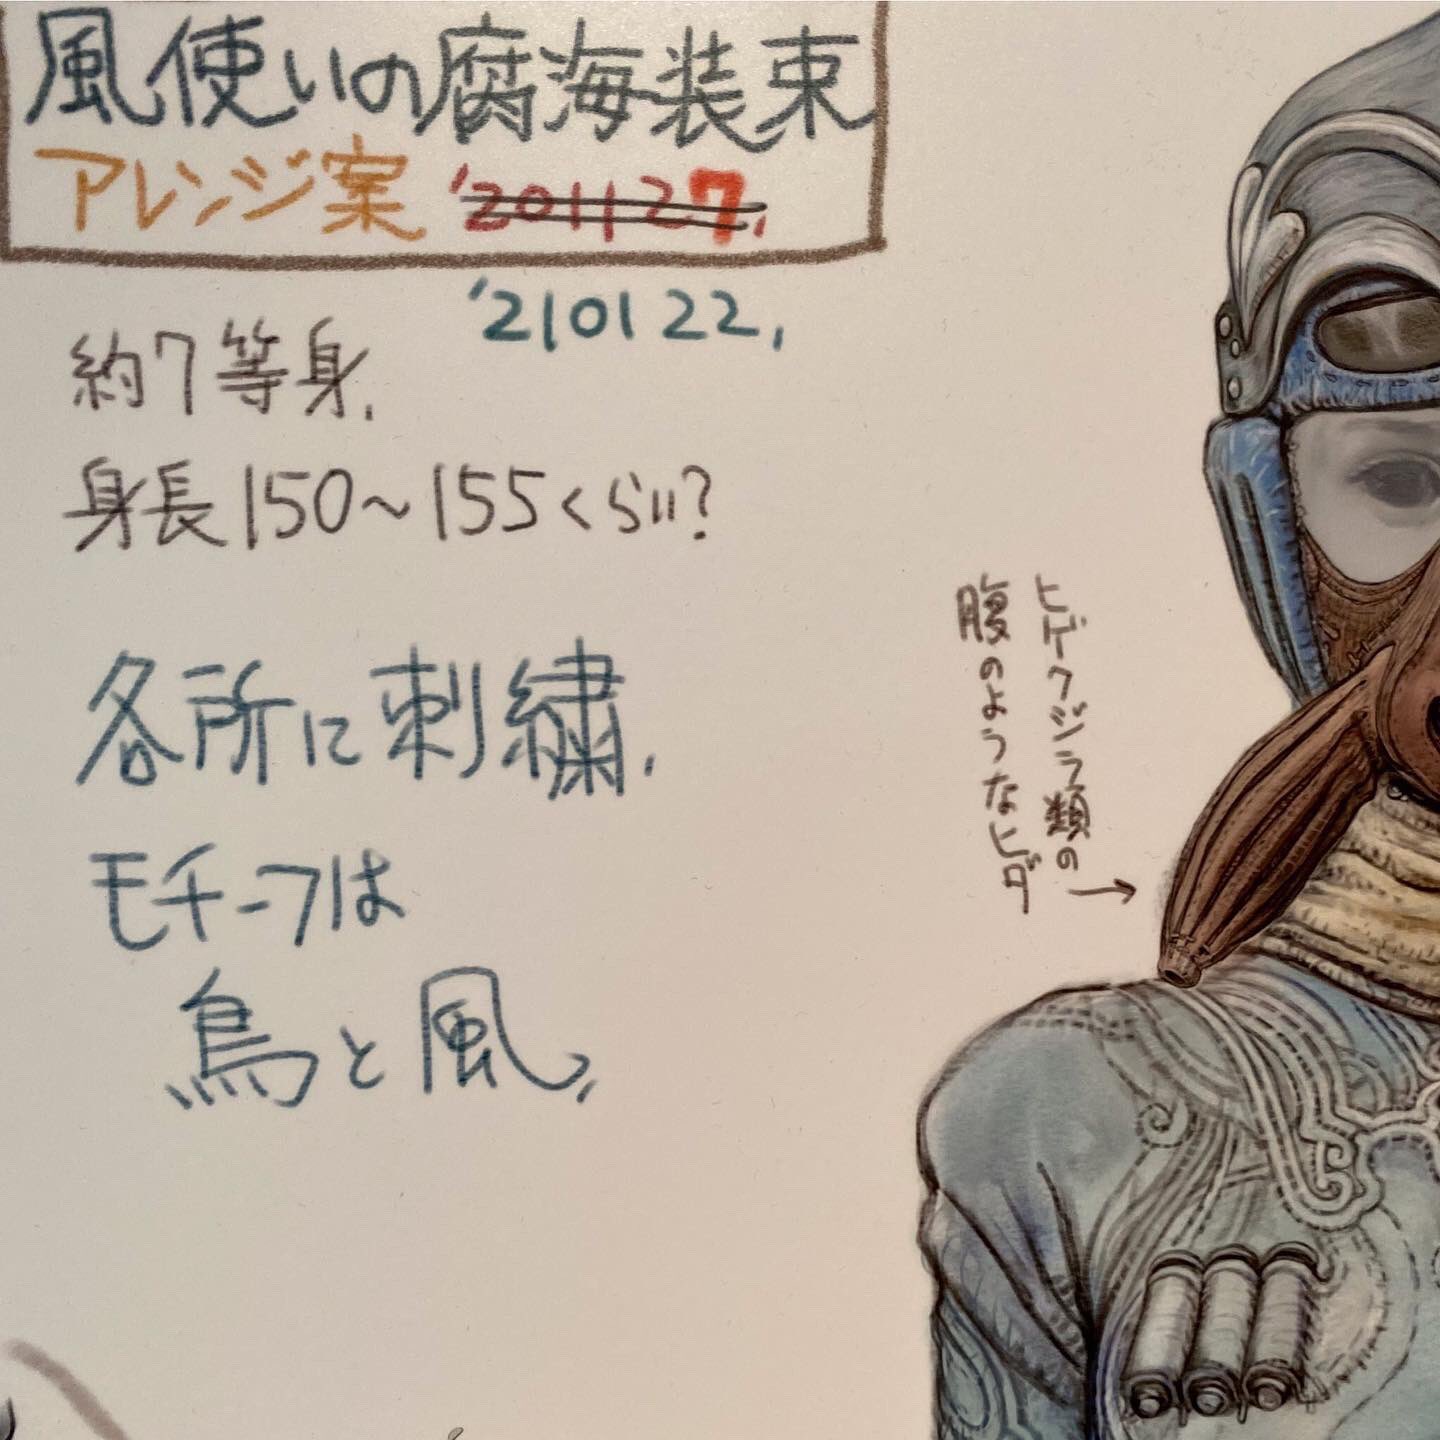 風使いの腐海装束
アレンジ案 '201127.
'210122.
約7等身.
身長150〜155くらい?
各所に刺繍.
モチーフは
鳥と風.
ヒゲクジラ類の
腹のようなヒダ→